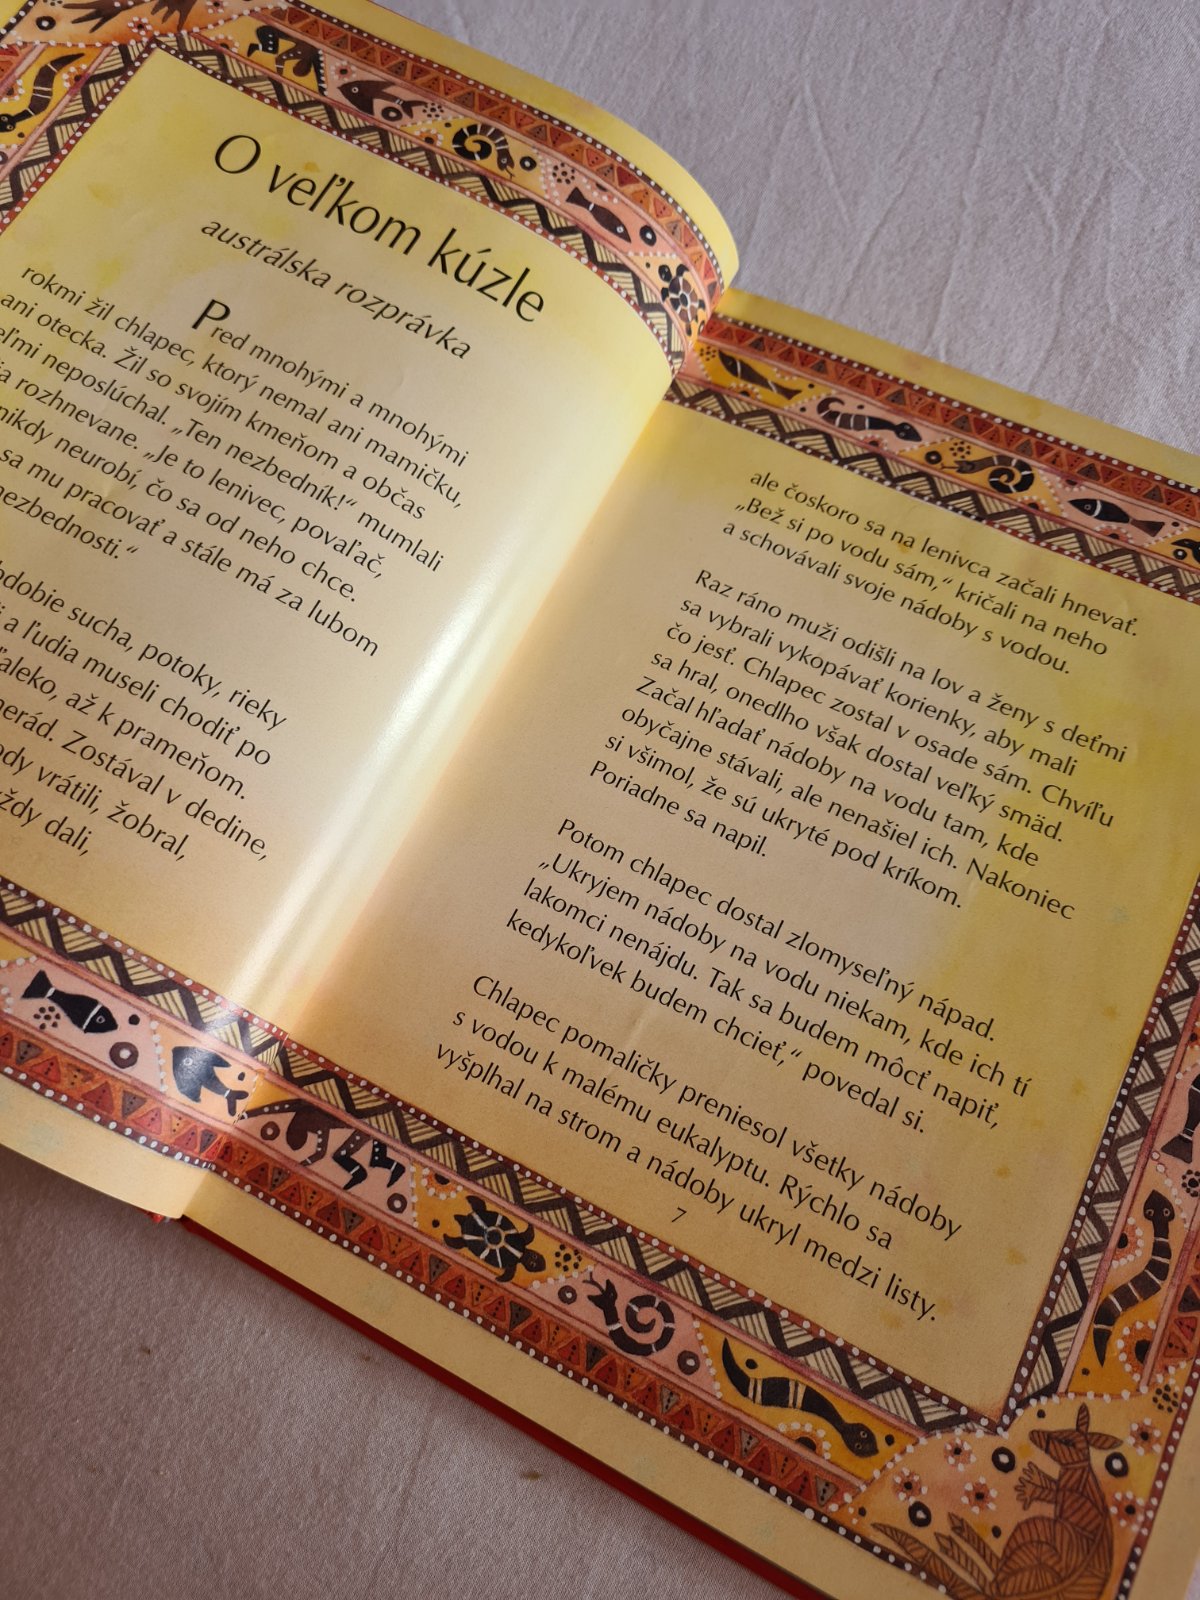 O veľkom kúzle
austrálska rozprávka
Pred mnohými a mnohými
rokmi žil chlapec, ktorý nemal ani mamičku,
ani otecka. Žil so svojím kmeňom a občas
neposlúchal. „Ten nezbedník!“ mumlali
rozhnevane. „Je to lenivec, povaľač,
nikdy neurobí, čo sa od neho chce.
sa mu pracovať a stále má za lubom
nezbednosti.“
obdobie sucha, potoky, rieky
a ľudia museli chodiť po
až k prameňom.
Zostával v dedine,
vrátili, žobral,
dali,
ale čoskoro sa na lenivca začali hnevať.
„Bež si po vodu sám,“ kričali na neho
a schovávali svoje nádoby s vodou.
Raz ráno muži odišli na lov a ženy s deťmi
sa vybrali vykopávať korienky, aby mali
čo jesť. Chlapec zostal v osade sám. Chvíľu
sa hral, onedlho však dostal veľký smäd.
Začal hľadať nádoby na vodu tam, kde
obyčajne stávali, ale nenašiel ich. Nakoniec
si všimol, že sú ukryté pod kríkom.
Poriadne sa napil.
Potom chlapec dostal zlomyseľný nápad.
„Ukryjem nádoby na vodu niekam, kde ich tí
lakomci nenájdu. Tak sa budem môcť napiť,
kedykoľvek budem chcieť,“ povedal si.
Chlapec pomaličky preniesol všetky nádoby
s vodou k malému eukalyptu. Rýchlo sa
vyšplhal na strom a nádoby ukryl medzi listy.
7